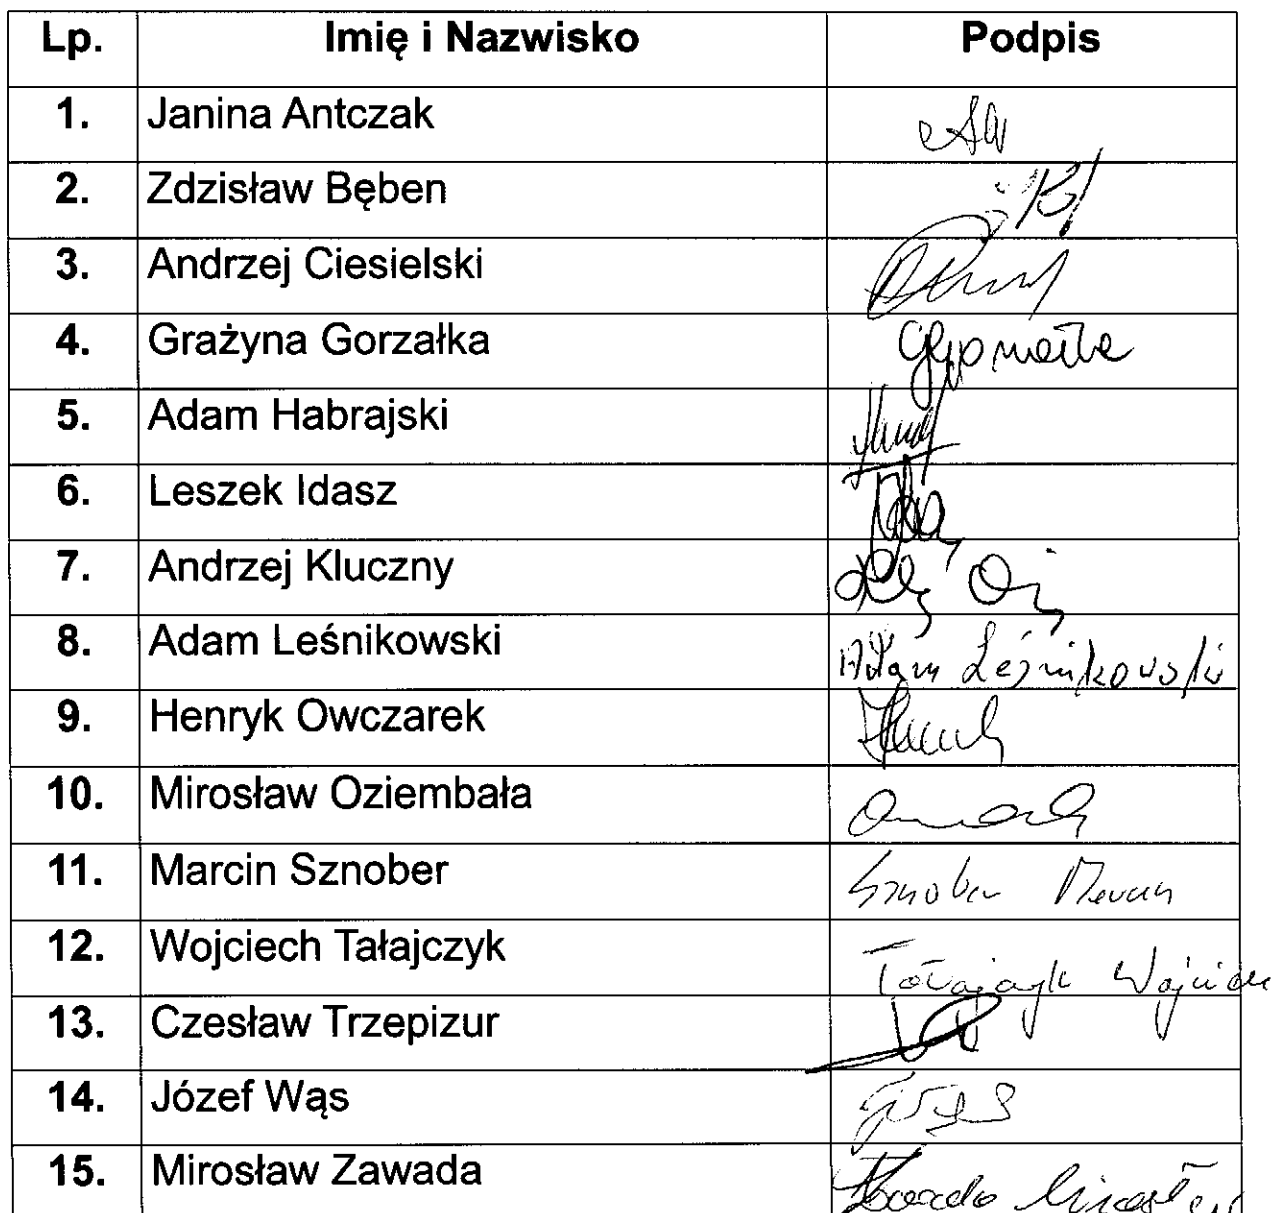 Lp. Imię i Nazwisko Podpis
1. Janina Antczak
2. Zdzisław Bęben
3. Andrzej Ciesielski
4. Grażyna Gorzałka
5. Adam Habrajski
6. Leszek Idasz
7. Andrzej Kluczny
8. Adam Leśnikowski Adam Leśnikowski
9. Henryk Owczarek
10. Mirosław Oziembała
11. Marcin Sznober Sznober Marcin
12. Wojciech Tałajczyk Tałajczyk Wojciech
13. Czesław Trzepizur
14. Józef Wąs
15. Mirosław Zawada Zawada Mirosław